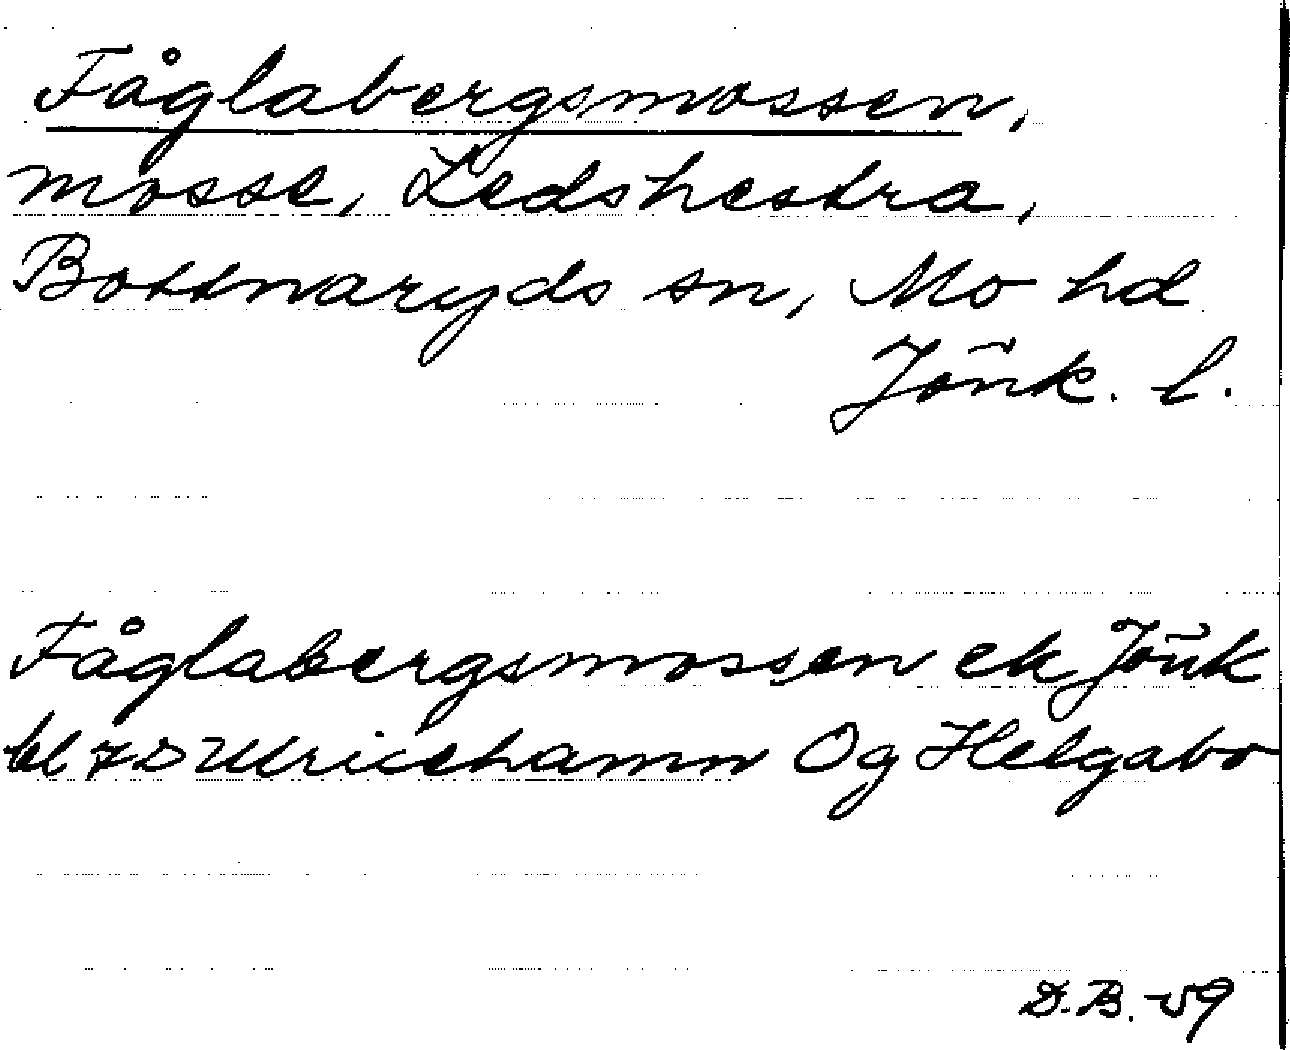 Fåglabergsmossen,
mosse, Ledshestra,
Bottnaryds sn, Mo hd
Jönk. l.
Fåglabergsmossen ek Jönk
bl 7 SO Ulricehamn Og Helgabo
D.B. -59